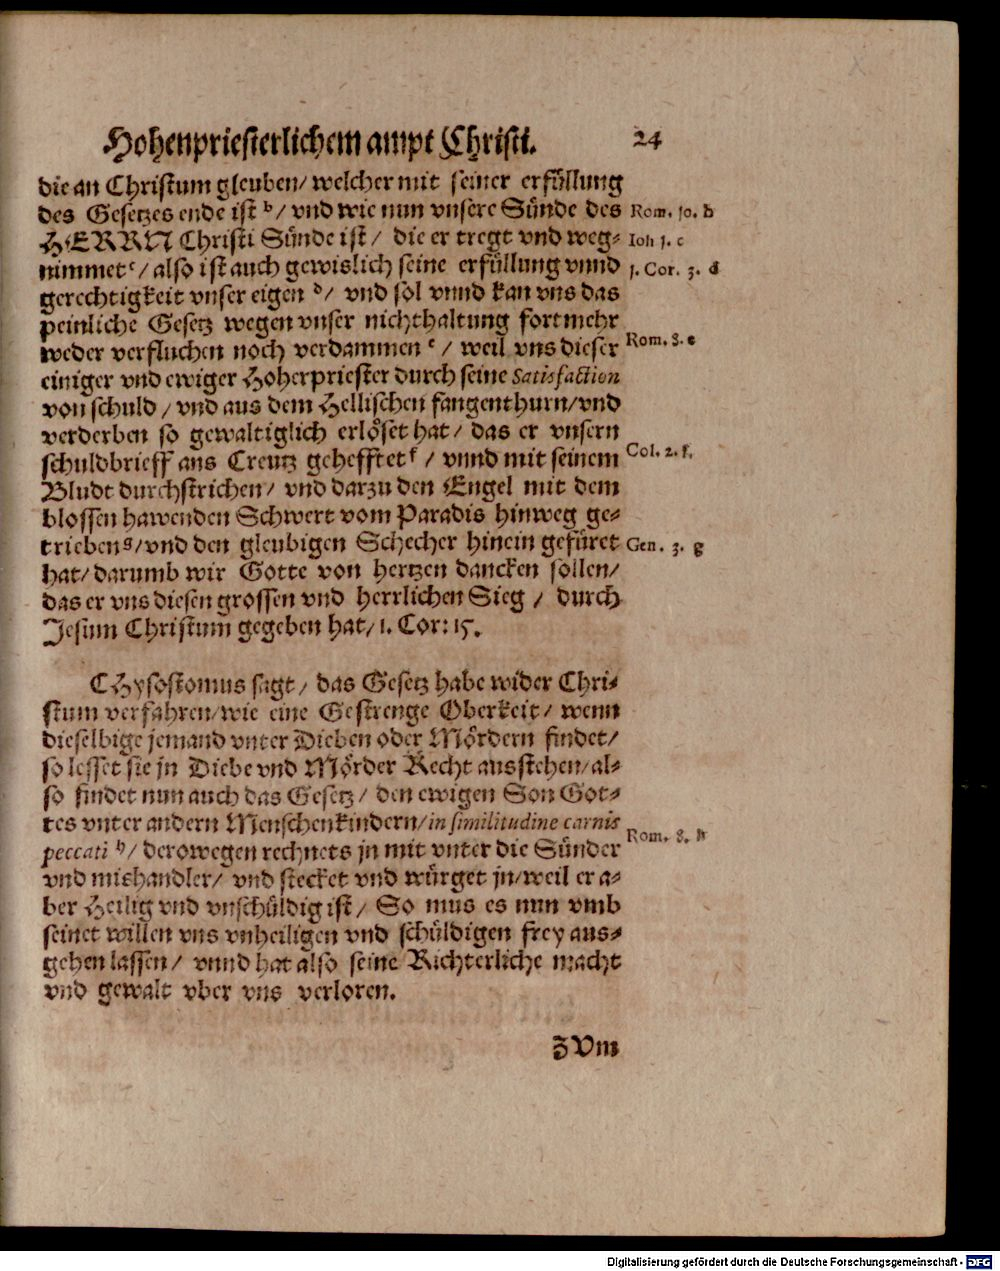 Hohenpriesterlichem ampt Christi. 24
die an Christum gleuben/ welcher mit seiner erföllung
des Gesetzes ende ist ᵇ/ vnd wie nun vnsere Sünde des Rom. 10. b
HERRN Christi Sünde ist/ die er tregt vnd weg- Ioh 1. c
nimmet ᶜ/ also ist auch gewislich seine erfüllung vnnd 1. Cor. 3. d
gerechtigkeit vnser eigen ᵈ/ vnd sol vnnd kan vns das
peinliche Gesetz wegen vnser nichthaltung fortmehr
weder verfluchen noch verdammen ᵉ/ weil vns dieser Rom. 8. e
einiger vnd ewiger Hoherpriester durch seine Satisfaction
von schuld/ vnd aus dem Hellischen fangenthurn/ vnd
verderben so gewaltiglich erlöset hat/ das er vnsern
schuldbrieff ans Creutz gehefftet ᶠ/ vnnd mit seinem Col. 2. f.
Bludt durchstrichen/ vnd darzu den Engel mit dem
blossen hawenden Schwert vom Paradis hinweg ge-
trieben ᵍ/ vnd den gleubigen Schecher hinein gefüret Gen. 3. g
hat/ darumb wir Gotte von hertzen dancken sollen/
das er vns diesen grossen vnd herrlichen Sieg/ durch
Jesum Christum gegeben hat/ 1. Cor: 15.
CHysostomus sagt/ das Gesetz habe wider Chri-
stum verfahren/ wie eine Gestrenge Oberkeit/ wenn
dieselbige jemand vnter Dieben oder Mördern findet/
so lesset sie jn Diebe vnd Mörder Recht ausstehen/ al-
so findet nun auch das Gesetz/ den ewigen Son Got-
tes vnter andern Menschenkindern/ in similitudine carnis
peccati ʰ/ derowegen rechnets jn mit vnter die Sünder Rom. 8. h
vnd mishandler/ vnd stecket vnd würget jn/ weil er a-
ber Heilig vnd vnschüldig ist/ So mus es nun vmb
seinet willen vns vnheiligen vnd schüldigen frey aus-
gehen lassen/ vnnd hat also seine Richterliche macht
vnd gewalt vber vns verloren.
ZVm
Digitalisierung gefördert durch die Deutsche Forschungsgemeinschaft - DFG